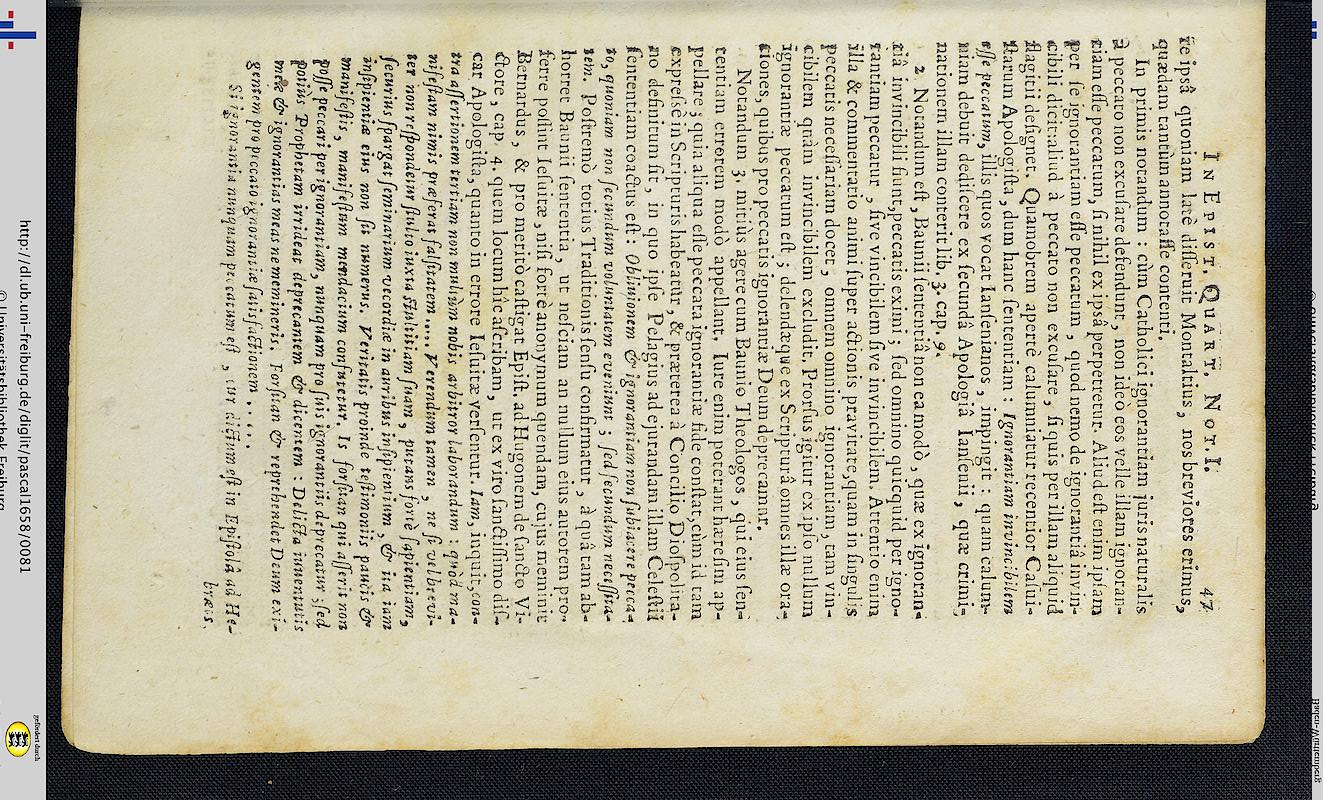 IN EPIST. QUART. NOT. I. 47
re ipsâ quoniam latè disseruit Montaltius, nos breviores erimus,
quædam tantùm annotasse contenti.
In primis notandum : cùm Catholici ignorantiam juris naturalis
à peccato non excusare defendunt, non ideò eos velle illam ignoran-
tiam esse peccatum, si nihil ex ipsâ perpetretur. Aliud est enim ipsam
per se ignorantiam esse peccatum, quod nemo de ignorantiâ invin-
cibili dicit: aliud à peccato non excusare, si quis per illam aliquid
flagitii designet. Quamobrem apertè calumniatur recentior Casui-
starum Apologista, dum hanc sententiam : Ignorantiam invincibilem
esse peccatum, illis quos vocat Iansenianos, impingit : quam calum-
niam debuit dediscere ex secundâ Apologiâ Iansenii, quæ crimi-
nationem illam conterit lib. 3. cap. 9.
2. Notandum est, Baunii sententiâ non ea modò, quæ ex ignoran-
tiâ invincibili fiunt, peccatis eximi ; sed omnino quicquid per igno-
rantiam peccatur, sive vincibilem sive invincibilem. Attentio enim
illa & commentatio animi super actionis pravitate, quam in singulis
peccatis necessariam docet, omnem omnino ignorantiam, tam vin-
cibilem quàm invincibilem excludit. Prorsus igitur ex ipso nullum
ignorantiæ peccatum est ; delendæque ex Scripturâ omnes illæ ora-
tiones, quibus pro peccatis ignorantiæ Deum deprecamur.
Notandum 3. mitiùs agere cum Baunio Theologos, qui eius sen-
tentiam errorem modò appellant. Iure enim poterant hæresim ap-
pellare ; quia aliqua esse peccata ignorantiæ fide constat, cùm id tam
expressè in Scripturis habeatur, & præterea à Concilio Diospolita-
no definitum sit, in quo ipse Pelagius ad ejurandam illam Celestii
sententiam coactus est : Oblivionem & ignorantiam non subiacere pecca-
to, quoniam non secundum voluntatem eveniunt ; sed secundum necessita-
tem. Postremò totius Traditionis sensu confirmatur, à quâ tam ab-
horret Baunii sententia, ut nesciam an nullum eius autorem pro-
ferre possint Iesuitæ, nisi fortè anonymum quendam, cujus meminit
Bernardus, & pro meritò castigat Epist. ad Hugonem de sancto Vi-
ctore, cap. 4. quem locum hîc ascribam, ut ex viro sanctissimo dis-
cat Apologista, quanto in errore Iesuitæ versentur. Iam, inquit, con-
tra assertionem tertiam non multùm nobis arbitror laborandum : quòd ma-
nifestam nimis præferat falsitatem .... Verendum tamen, ne si vel brevi-
ter non respondeatur stulto iuxta stultitiam suam, putans fortè sapientiam,
securius spargat seminarium vecordiæ in auribus insipientium, & ita iam
insipientiæ eius non sit numerus. Veritatis proinde testimoniis paucis &
manifestis, manifestum mendacium confutetur. Is forsitan qui asserit non
posse peccari per ignorantiam, nunquam pro suis ignorantiis deprecatur, sed
potiùs Prophetam irrideat deprecantem & dicentem : Delicta iuventutis
meæ & ignorantias meas ne memineris. Forsitan & reprehendet Deum exi-
gentem pro peccato ignorantiæ satisfactionem ......
Si ignorantia nunquam peccatum est, cur dictum est in Epistola ad He-
bræos,
http://dl.ub.uni-freiburg.de/diglit/pascal1658/0081
© Universitätsbibliothek Freiburg
gefördert durch